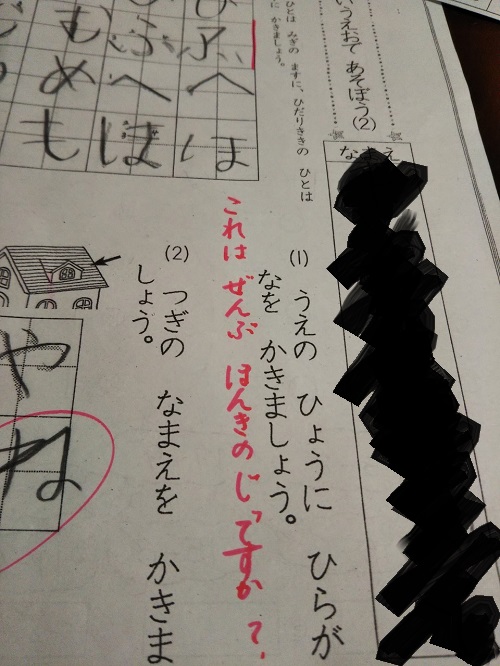 いうえおで あそぼう(2)
なまえ
ひとは みぎの ますに、ひだりききの ひとは
に かきましょう。
ふへほ
ふへほ
むめも
(1) うえの ひょうに ひらが
なを かきましょう。
これは ぜんぶ ほんきのじですか？
(2) つぎの なまえを かきま
しょう。
やね